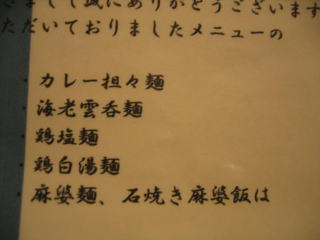 まして誠にありがとうございます
ただいておりましたメニューの
・カレー担々麺
・海老雲呑麺
・鶏塩麺
・鶏白湯麺
・麻婆麺、石焼き麻婆飯は